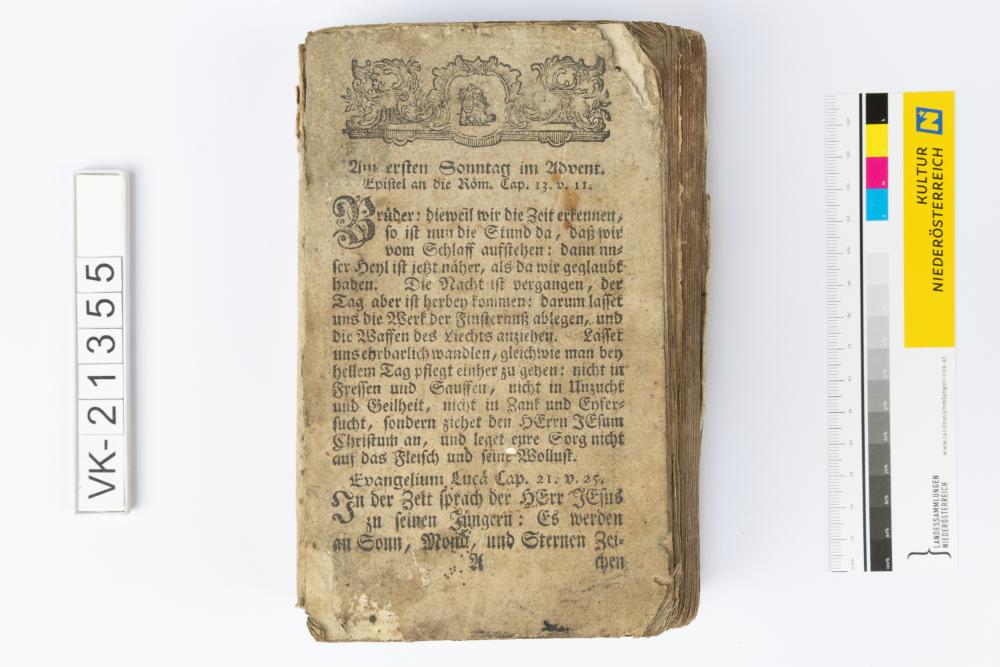 Am ersten Sonntag im Advent.
Epistel an die Röm. Cap. 13. v. 11.
Brüder: dieweil wir die Zeit erkennen,
so ist nun die Stund da, daß wir
vom Schlaff aufstehen: dann un-
ser Heyl ist jetzt näher, als da wir geglaubt
haben. Die Nacht ist vergangen, der
Tag aber ist herbey kommen: darum lasset
uns die Werk der Finsternuß ablegen, und
die Waffen des Liechts anziehen. Lasset
uns ehrbarlich wandlen, gleichwie man bey
hellem Tag pflegt einher zu gehen: nicht in
Fressen und Sauffen, nicht in Unzucht
und Geilheit, nicht in Zank und Eyfer-
sucht, sondern ziehet den HErrn JEsum
Christum an, und leget eure Sorg nicht
auf das Fleisch und seine Wollust.
Evangelium Lucä Cap. 21. v. 25.
In der Zeit sprach der HErr JEsus
zu seinen Jüngern: Es werden
an Sonn, Mond, und Sternen Zei-
A chen
VK-21355
KULTUR
NIEDERÖSTERREICH
www.landessammlungen-noe.at
LANDESSAMMLUNGEN
NIEDERÖSTERREICH